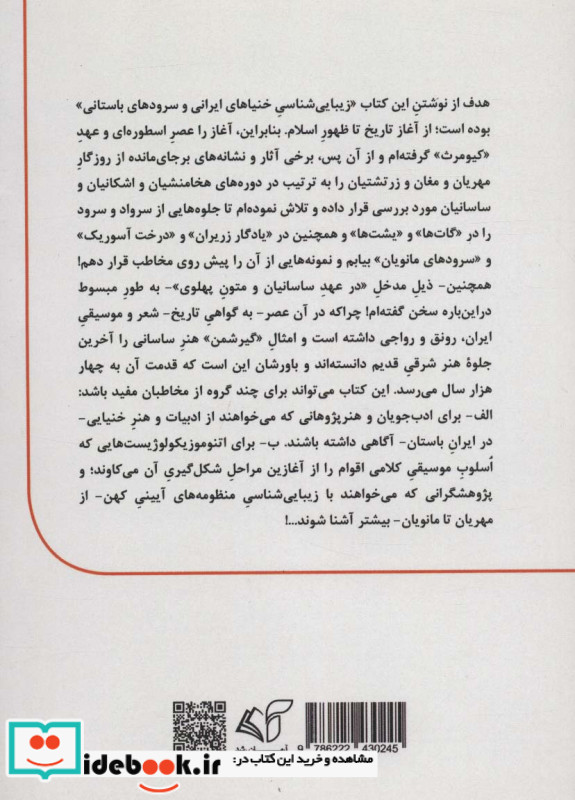 هدف از نوشتنِ این کتاب «زیبایی‌شناسیِ خنیاهای ایرانی و سرودهای باستانی»
بوده است؛ از آغاز تاریخ تا ظهورِ اسلام. بنابراین، آغاز را عصرِ اسطوره‌ای و عهدِ
«کیومرث» گرفته‌ام و از آن پس، برخی آثار و نشانه‌های برجای‌مانده از روزگارِ
مهریان و مغان و زرتشتیان را به ترتیب در دوره‌های هخامنشیان و اشکانیان و
ساسانیان مورد بررسی قرار داده و تلاش نموده‌ام تا جلوه‌هایی از سرواد و سرود
را در «گات‌ها» و «یشت‌ها» و همچنین در «یادگار زریران» و «درخت آسوریک»
و «سرودهای مانویان» بیابم و نمونه‌هایی از آن را پیش روی مخاطب قرار دهم!
همچنین- ذیلِ مدخلِ «در عهدِ ساسانیان و متونِ پهلوی»- به طورِ مبسوط
دراین‌باره سخن گفته‌ام! چراکه در آن عصر- به گواهیِ تاریخ- شعر و موسیقیِ
ایران، رونق و رواجی داشته است و امثالِ «گیرشمن» هنرِ ساسانی را آخرین
جلوهٔ هنر شرقیِ قدیم دانسته‌اند و باورشان این است که قدمت آن به چهار
هزار سال می‌رسد. این کتاب می‌تواند برای چند گروه از مخاطبان مفید باشد:
الف- برای ادب‌جویان و هنرپژوهانی که می‌خواهند از ادبیات و هنرِ خنیایی-
در ایرانِ باستان- آگاهی داشته باشند. ب- برای اتنوموزیکولوژیست‌هایی که
اُسلوبِ موسیقیِ کلامی اقوام را از آغازین مراحلِ شکل‌گیریِ آن می‌کاوند؛ و
پژوهشگرانی که می‌خواهند با زیبایی‌شناسیِ منظومه‌های آیینیِ کهن- از
مهریان تا مانویان- بیشتر آشنا شوند...!
9 786222 430245
مشاهده و خرید این کتاب در:
idebook.ir